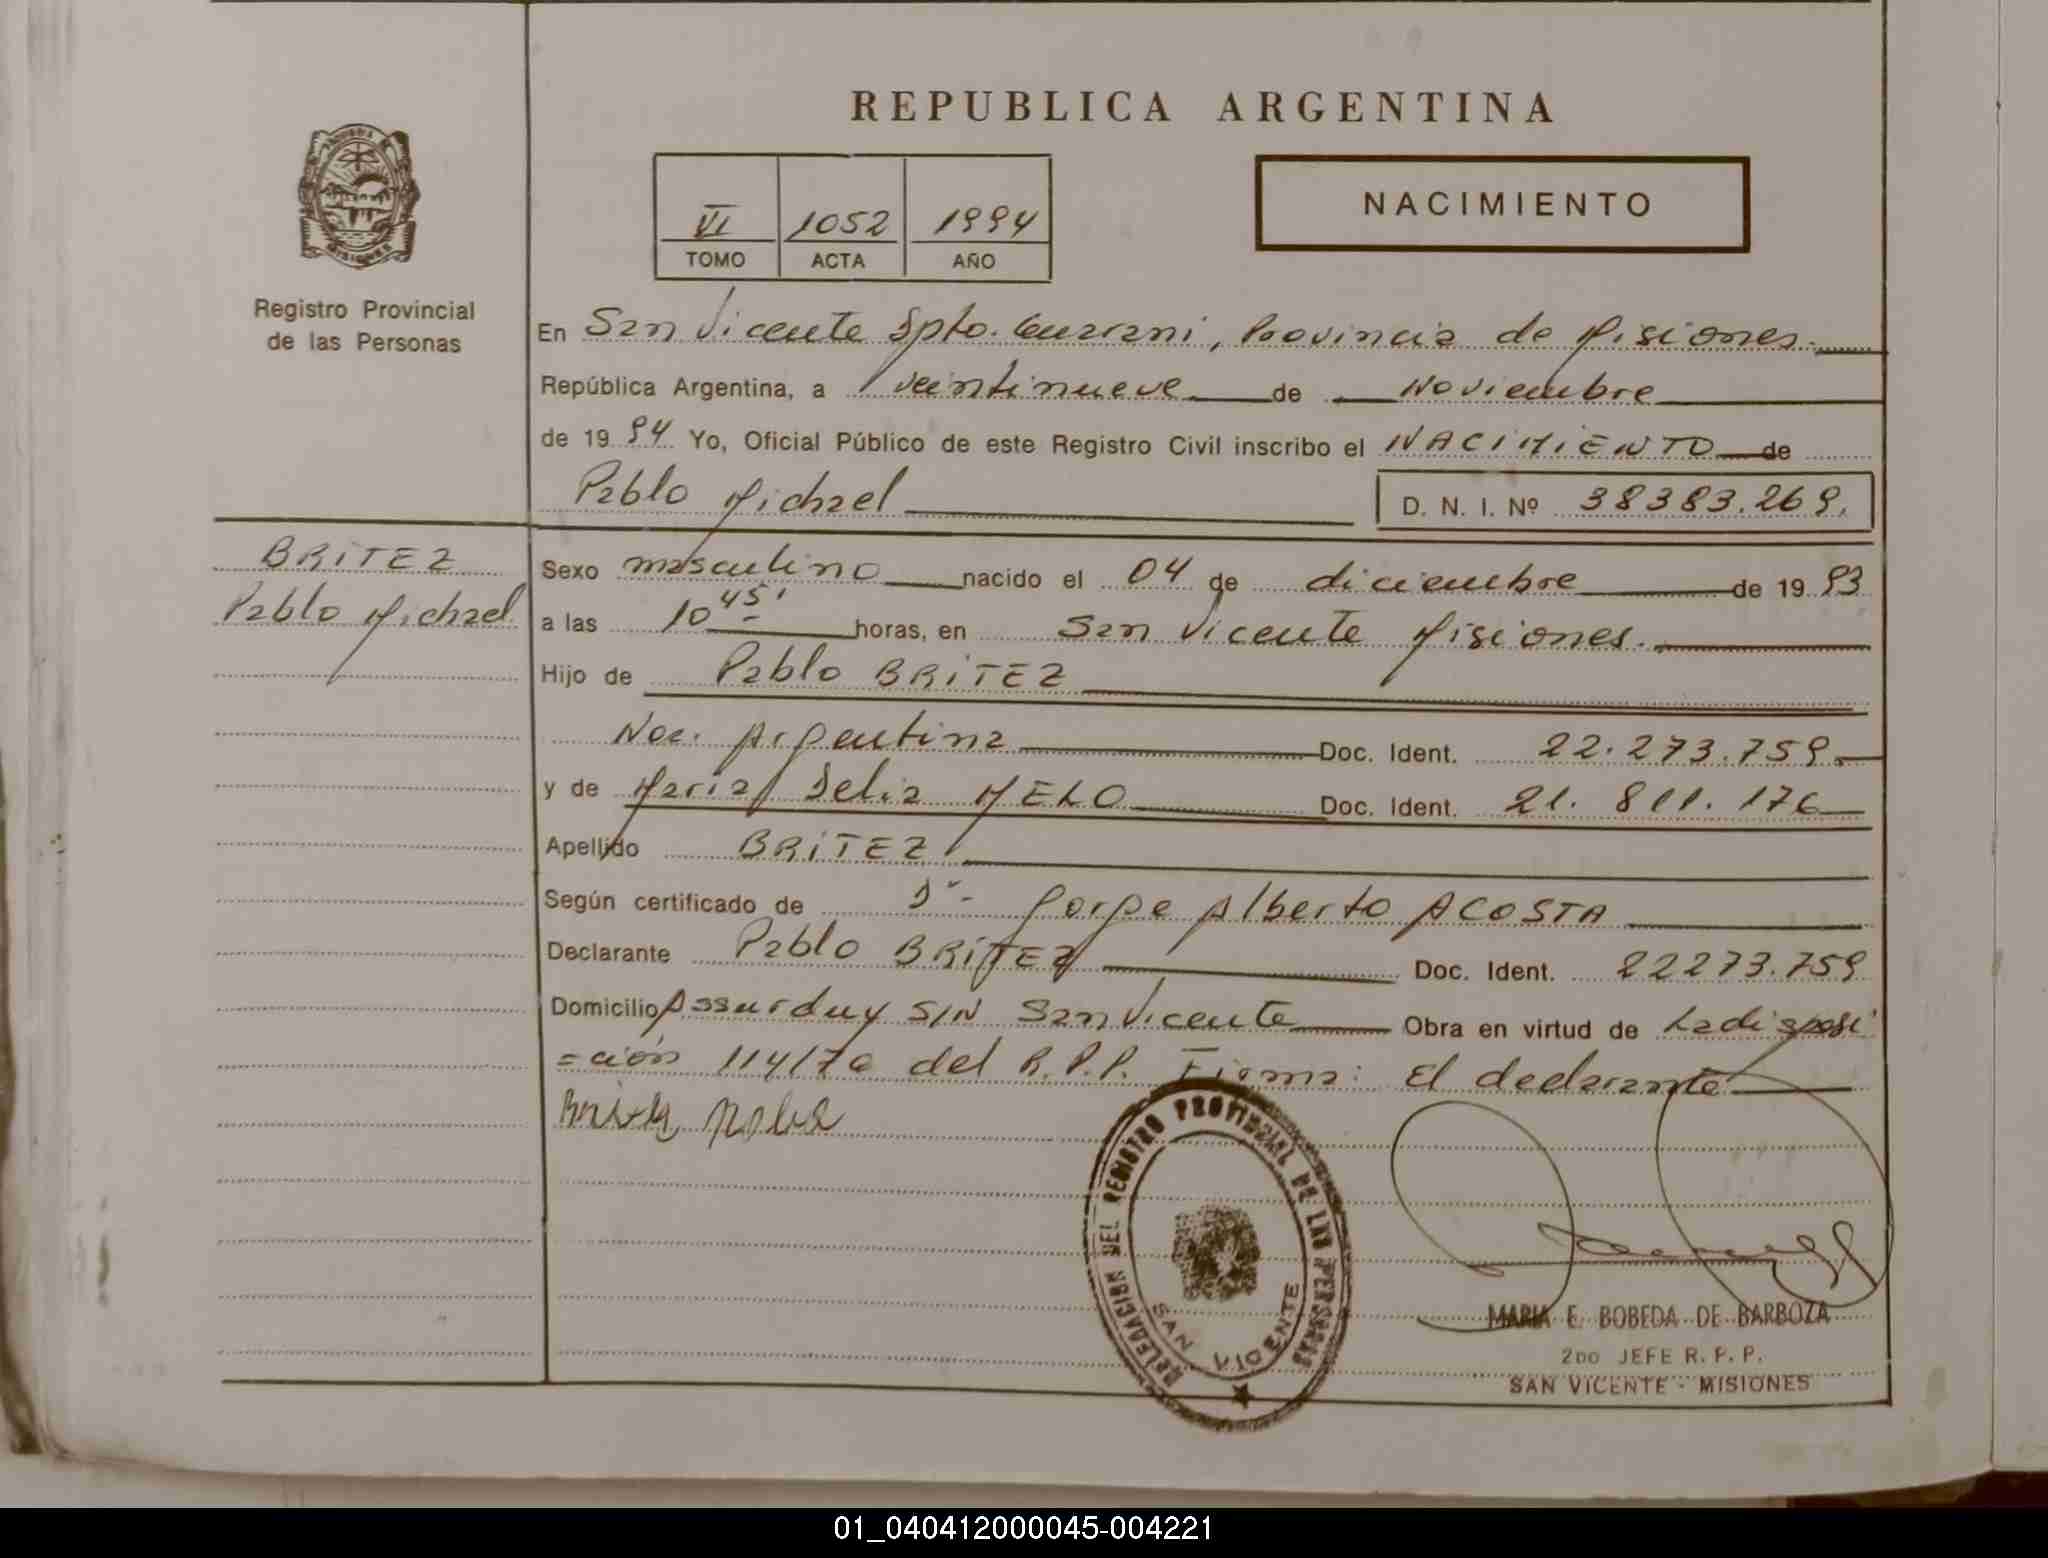 REPUBLICA ARGENTINA
VI 1052 1994
TOMO ACTA AÑO
NACIMIENTO
MISIONES
Registro Provincial
de las Personas
En San Vicente Dpto. Guarani, Provincia de Misiones.
República Argentina, a veintinueve de Noviembre
de 1994 Yo, Oficial Público de este Registro Civil inscribo el NACIMIENTO de
Pablo Michael D. N. I. Nº 38383.269.
BRITEZ
Pablo Michael
Sexo masculino nacido el 04 de diciembre de 1993
a las 10 45' horas, en San Vicente Misiones.
Hijo de Pablo BRITEZ
Nac. Argentina Doc. Ident. 22.273.759.
y de Maria Delia MELO Doc. Ident. 21.811.176
Apellido BRITEZ
Según certificado de Dr. Jorge Alberto ACOSTA
Declarante Pablo BRITEZ Doc. Ident. 22273.759
Domicilio Assurduy S/N San Vicente Obra en virtud de La disposi
=ción 114/76 del R.P.P. Firma: El declarante
Britez Pablo
DELEGACION DEL REGISTRO PROVINCIAL DE LAS PERSONAS
SAN VICENTE
MARIA E. BOBEDA DE BARBOZA
2DO JEFE R. P. P.
SAN VICENTE - MISIONES
01_040412000045-004221